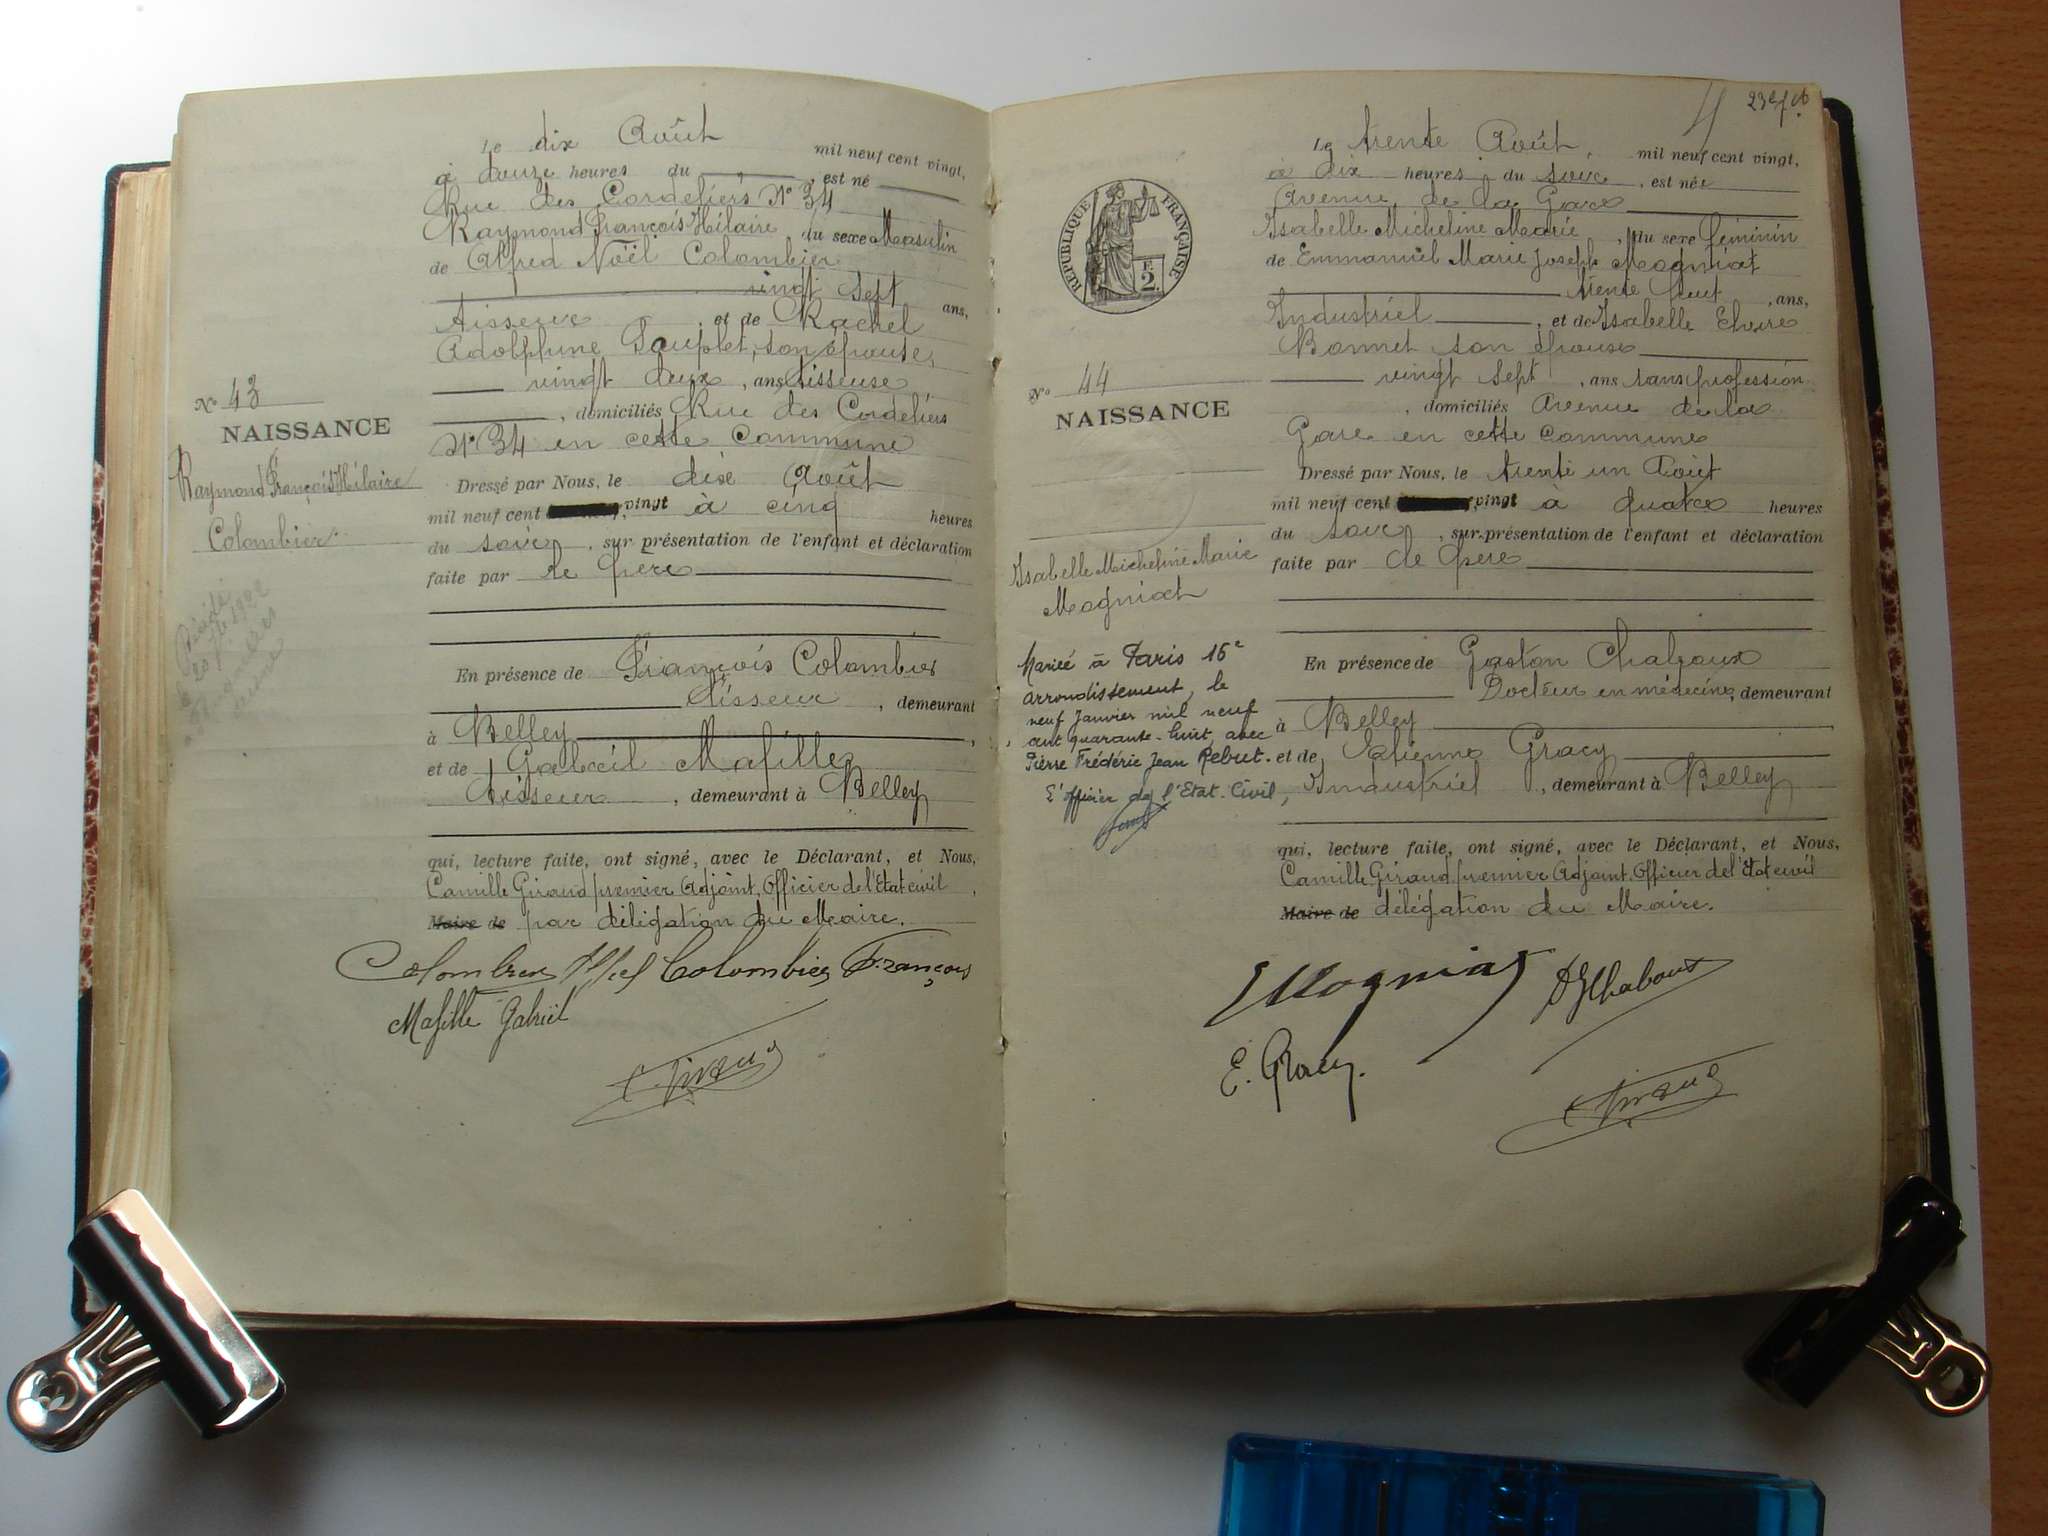 Le dix Août mil neuf cent vingt,
à douze heures du, est né
Rue des Cordeliers N° 34
Raymond François Hilaire, du sexe Masculin
de Alfred Noël Colombier
vingt sept ans,
tisseur, et de Rachel
Adolphine, son épouse,
vingt deux, ans tisseuse
, domiciliés Rue des Cordeliers
N° 34 en cette Commune
N° 43
NAISSANCE
Raymond François Hilaire
Colombier
Dressé par Nous, le dix Août
mil neuf cent vingt à cinq heures
du soir, sur présentation de l'enfant et déclaration
faite par le père
En présence de François Colombier
tisseur, demeurant
à Belley,
et de Gabriel Mafille
tisseur, demeurant à Belley
qui, lecture faite, ont signé, avec le Déclarant, et Nous,
Camille Giraud premier Adjoint, Officier de l'Etat civil,
Maire de par délégation du Maire.
Colombier Alfred Colombier François
Mafille Gabriel
C. Giraud
23e f.
RÉPUBLIQUE FRANÇAISE
E. 2.
Le trente Août, mil neuf cent vingt,
à dix heures du soir, est née
Avenue de la Gare
Isabelle Micheline Marie, du sexe féminin
de Emmanuel Marie Joseph Magniat
trente, ans,
Industriel, et de Isabelle
Bonnet son épouse
vingt sept, ans sans profession
, domiciliés Avenue de la
Gare en cette Commune
N° 44
NAISSANCE
Isabelle Micheline Marie
Magniat
Mariée à Paris 16e
arrondissement, le
neuf Janvier mil neuf
cent quarante-huit, avec
Pierre Frédéric Jean Rebut.
L'officier de l'Etat-Civil,
Dressé par Nous, le trente un Août
mil neuf cent vingt à quatre heures
du soir, sur présentation de l'enfant et déclaration
faite par le père
En présence de Gaston Chaboux
Docteur en médecine, demeurant
à Belley
et de Etienne Gracy
Industriel, demeurant à Belley
qui, lecture faite, ont signé, avec le Déclarant, et Nous,
Camille Giraud premier Adjoint, Officier de l'Etat civil
Maire de délégation du Maire.
E Magniat D G Chaboux
E. Gracy.
C. Giraud